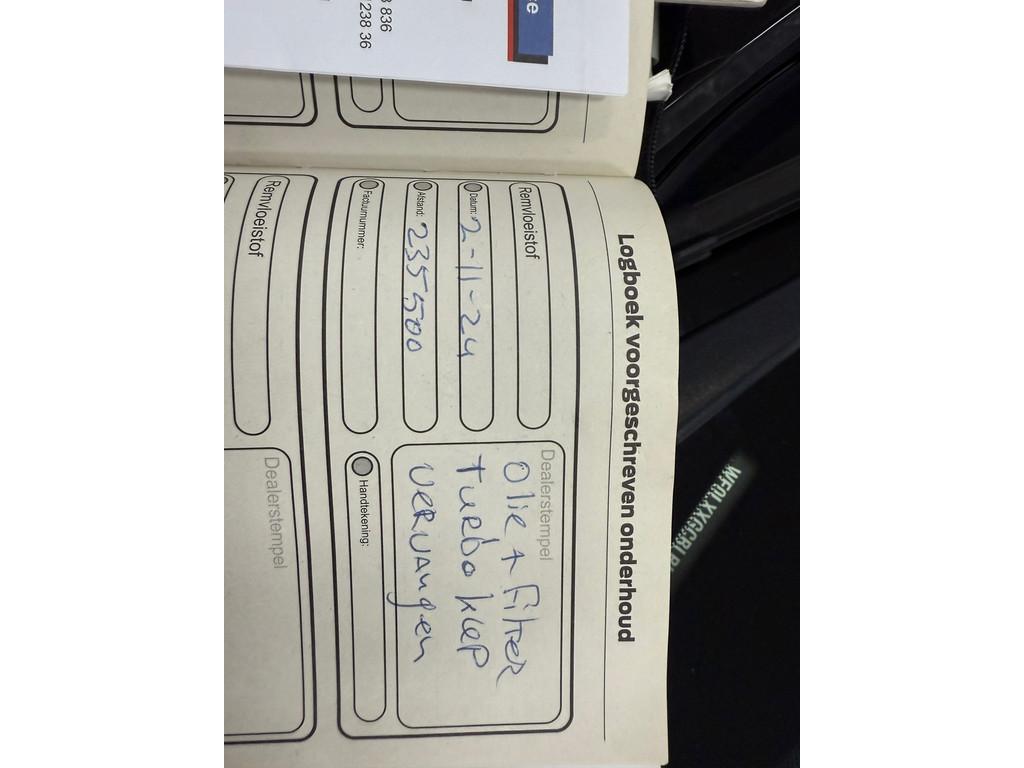 Logboek voorgeschreven onderhoud
Remvloeistof
Datum: 2-11-24
Afstand: 235500
Factuurnummer:
Dealerstempel
Olie + Filter
Turbo klep
vervangen
Handtekening:
Remvloeistof
Dealerstempel
836
238 36
ce